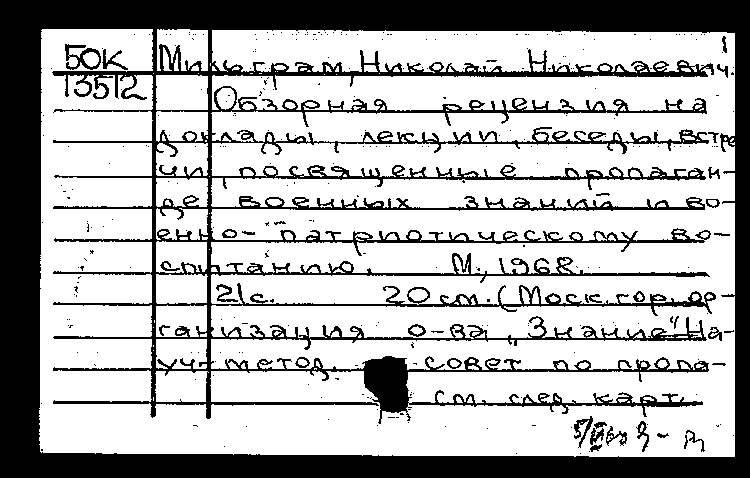 1
БОК Мильграм, Николай Николаевич.
13512
Обзорная рецензия на
доклады, лекции, беседы, встре
чи, посвященные пропаган-
де военных знаний и во-
енно-патриотическому во-
спитанию. М., 1968.
21с. 20 см. (Моск. гор. ор-
ганизация о-ва „Знание" На-
уч-метод. совет по пропа-
см. след. карт.